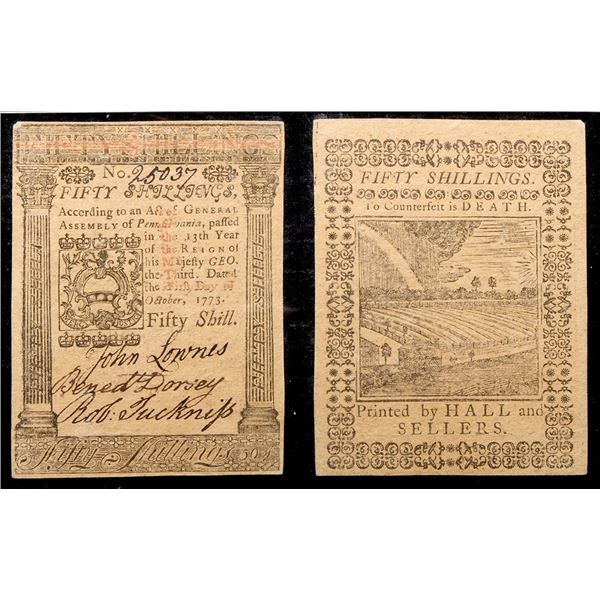 FIFTY SHILLINGS
No. 25037
FIFTY SHILLINGS,
According to an Act of GENERAL
ASSEMBLY of Pennsylvania, passed
in the 13th Year
of the REIGN of
his Majesty GEO.
the Third. Dated
the First Day of
October, 1773.
Fifty Shill.
John Lownes
Bened Dorsey
Rob. Tuckniſs
Fifty Shillings. 50s
FIFTY SHILLINGS.
To Counterfeit is DEATH.
Printed by HALL and
SELLERS.